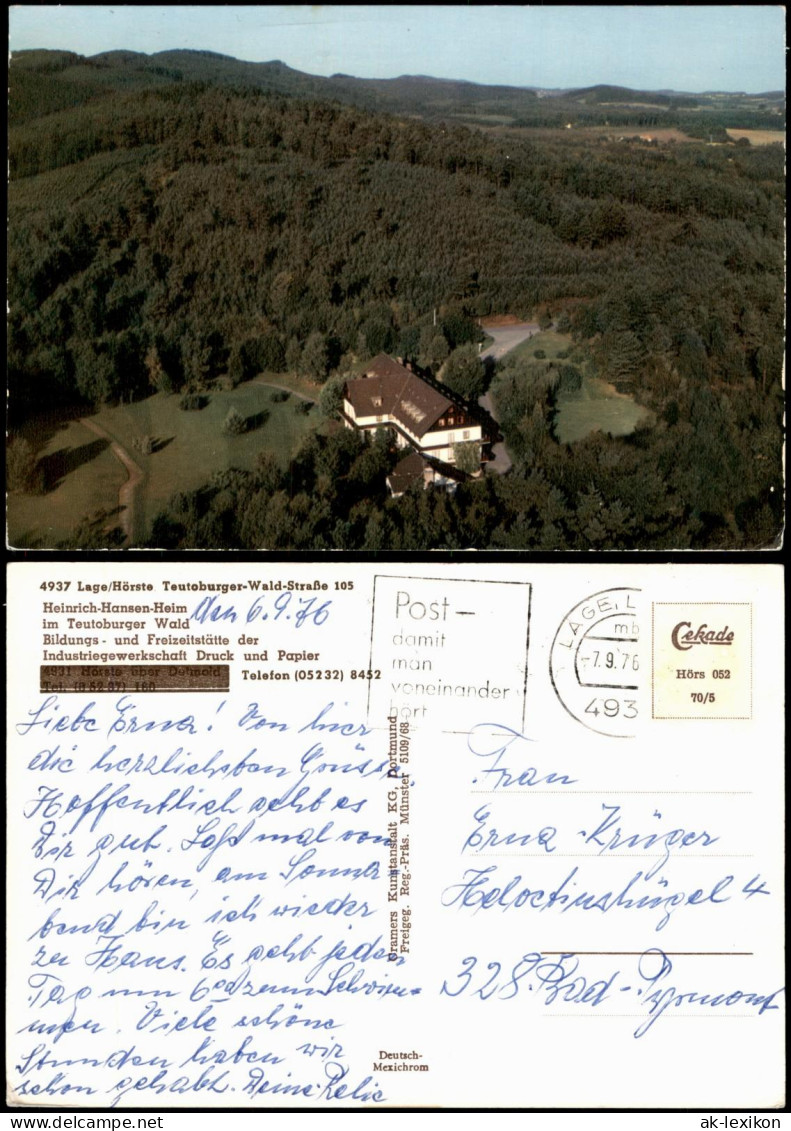 4937 Lage/Hörste Teutoburger-Wald-Straße 105
Heinrich-Hansen-Heim
im Teutoburger Wald
Bildungs- und Freizeitstätte der
Industriegewerkschaft Druck und Papier
4931 Hörste über Detmold
Telefon (05232) 8452
Tel. (0 52 37) 160
Den 6.9.76
Post-
damit
man
voneinander
hört
LAGE, L
mb
-7.9.76
493
Cekade
Hörs 052
70/5
Liebe Erna! Von hier
die herzlichsten Grüsse
Hoffentlich geht es
Dir gut. Laß mal von
Dir hören, am Sonna
bend bin ich wieder
zu Haus. Es geht jeden
Tag um 6 zum Schwim=
men. Viele schöne
Stunden haben wir
schon gehabt. Deine
Cramers Kunstanstalt KG, Dortmund
Freigeg. Reg.-Präs. Münster 5109/68
Frau
Erna Krüger
Helvetiushügel 4
328 Bad-Pyrmont
Deutsch-
Mexichrom
www.ak-lexikon.de
ak-lexikon